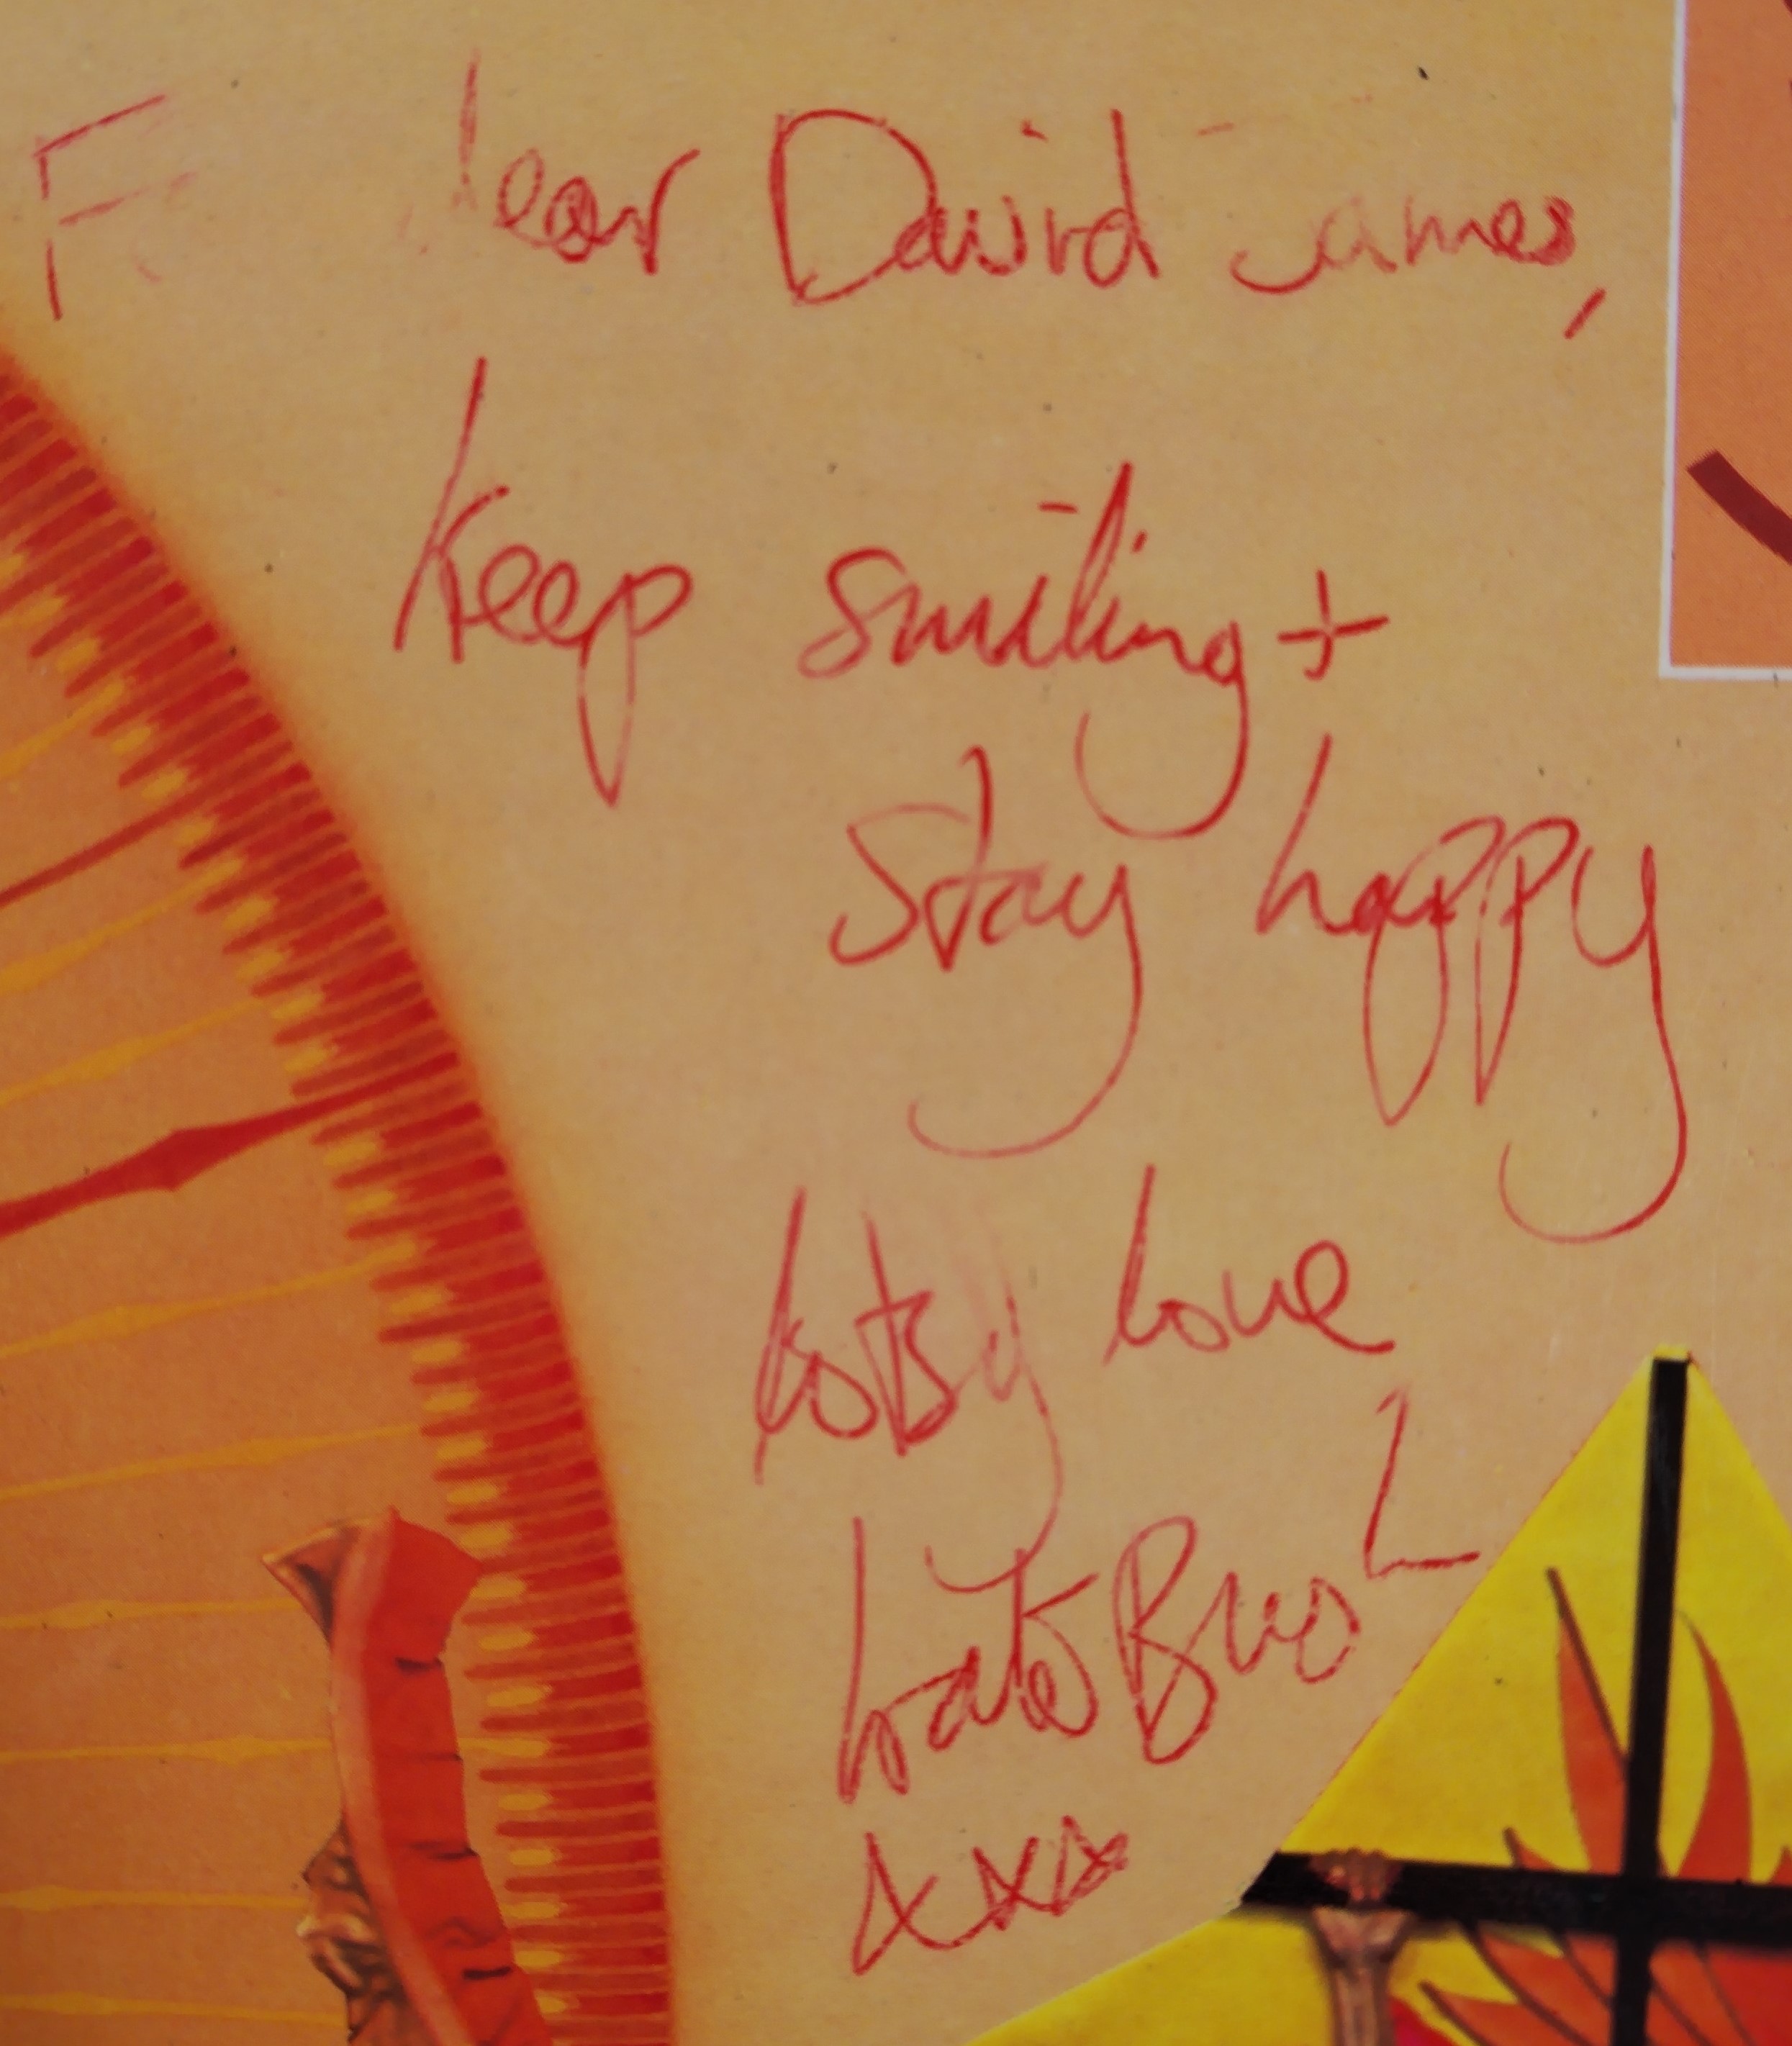 dear David James,
Keep smiling +
stay happy
lotsy love
Kate Bush
xxx